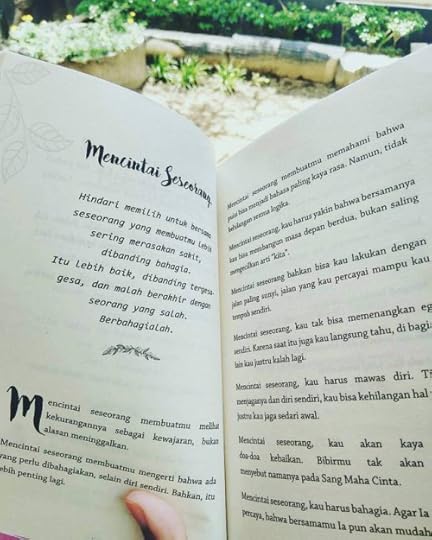 Mencintai Seseorang
Hindari memilih untuk bersama
seseorang yang membuatmu lebih
sering merasakan sakit,
dibanding bahagia.
Itu lebih baik, dibanding terges
gesa, dan malah berakhir dengan
seorang yang salah.
Berbahagialah.
Mencintai seseorang membuatmu melihat
kekurangannya sebagai kewajaran, bukan
alasan meninggalkan.
Mencintai seseorang membuatmu mengerti bahwa ada
yang perlu dibahagiakan, selain diri sendiri. Bahkan, itu
lebih penting lagi.
Mencintai seseorang membuatmu memahami bahwa
puisi bisa menjadi bahasa paling kaya rasa. Namun, tidak
kehilangan semua logika.
Mencintai seseorang, kau harus yakin bahwa bersamanya
kau bisa membangun masa depan berdua, bukan saling
mengecilkan arti "kita".
Mencintai seseorang bahkan bisa kau lakukan dengan
jalan paling sunyi, jalan yang kau percayai mampu kau
tempuh sendiri.
Mencintai seseorang, kau tak bisa memenangkan eg
sendiri. Karena saat itu juga kau langsung tahu, di bagia
lain kau justru kalah lagi.
Mencintai seseorang, kau harus mawas diri. Ti
menjaganya dan diri sendiri, kau bisa kehilangan hal
justru kau jaga sedari awal.
Mencintai seseorang, kau akan kaya
doa-doa kebaikan. Bibirmu tak akan
menyebut namanya pada Sang Maha Cinta.
Mencintai seseorang, kau harus bahagia. Agar Ia
percaya, bahwa bersamamu Ia pun akan mudah